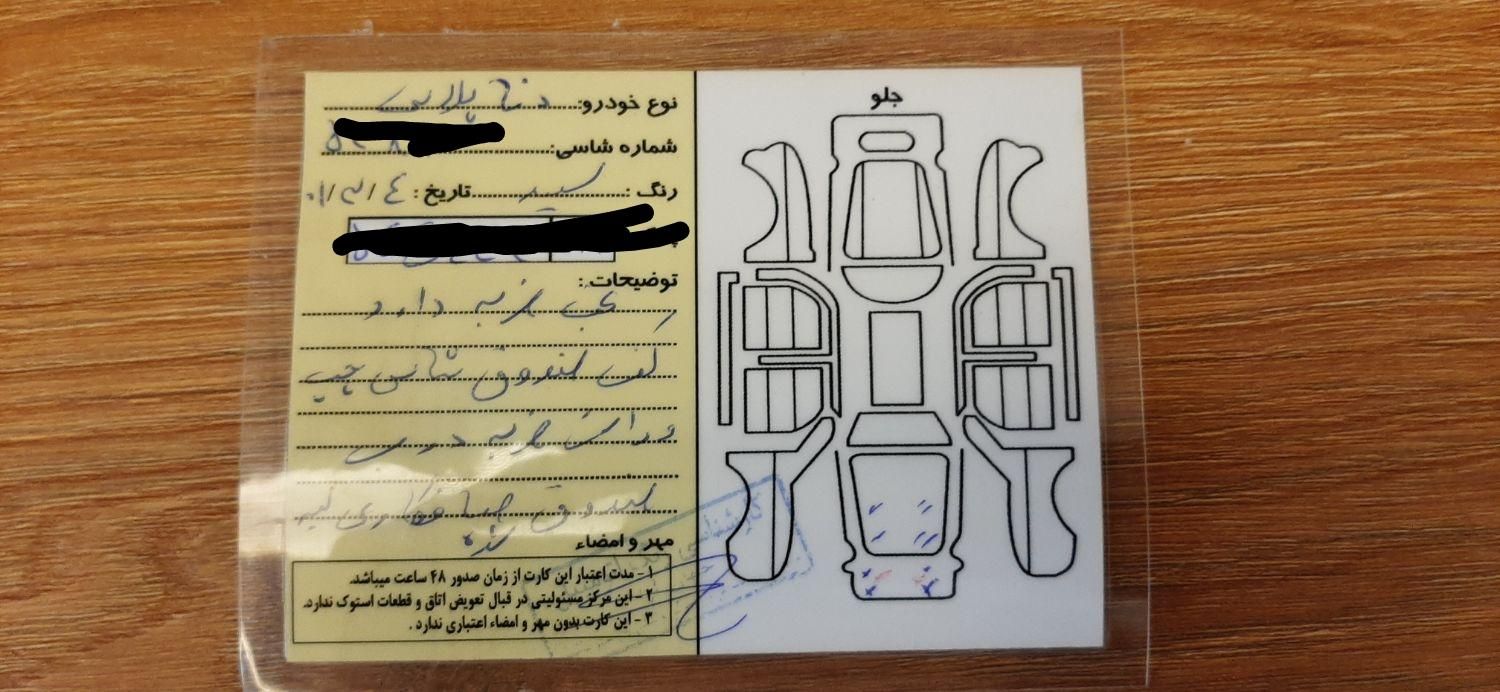 نوع خودرو: دنا پلاس
شماره شاسی:
رنگ : سفید تاریخ : ۰۱/۳/۴
توضیحات :
عقب ضربه دارد
کف صندوق شاسی چپ
و راست ضربه درب
صندوق
مهر و امضاء
۱ - مدت اعتبار این کارت از زمان صدور ۴۸ ساعت میباشد.
۲ - این مرکز مسئولیتی در قبال تعویض اتاق و قطعات استوک ندارد.
۳ - این کارت بدون مهر و امضاء اعتباری ندارد .
جلو
کارشناسی